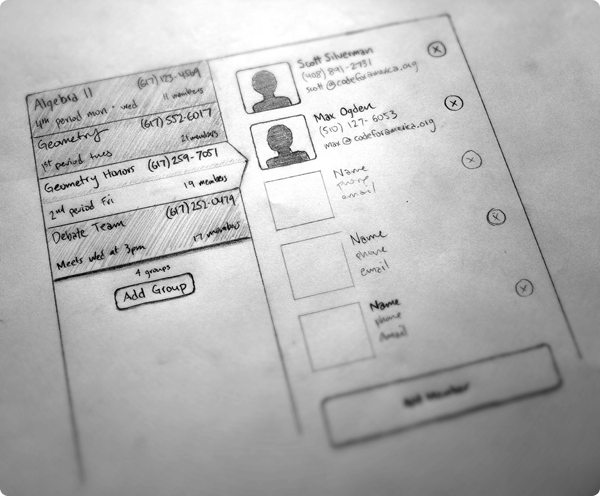 Algebra II (617) 123-4569
4th period mon - wed 11 members
Geometry (617) 552-6017
1st period tues 21 members
Geometry Honors (617) 259-7051
2nd period Fri 19 members
Debate Team (617) 252-0479
Meets wed at 3pm 17 members
4 groups
Add Group
Scott Silverman
(408) 891-2731
scott@codeforamerica.org
Max Ogden
(510) 127-6053
max@codeforamerica.org
Name
phone
email
Name
phone
email
Name
phone
email
Add Member